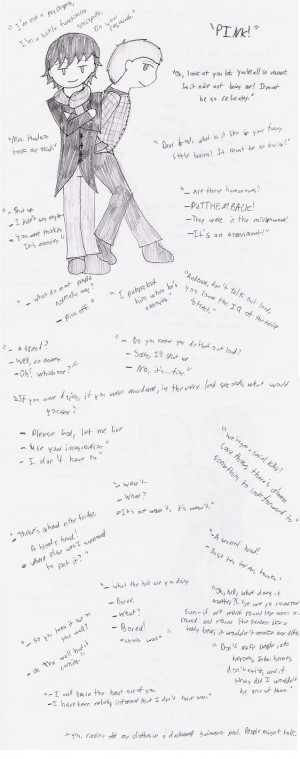 "I'm not a psychopath,
I'm a
Do your
"PINK!"
"Oh, look at you lot. You're all so vacant.
Is it nice not being me? It must
be so relaxing."
"Mrs. Hudson
took my skull."
"Dear God, what is it like in your funny
little brains? It must be so boring!"
- Shut up.
- I didn't say anything
- You were thinking.
It's annoying."
"- Are these human eyes?
- PUT THEM BACK!
- They were in the microwave!
- It's an experiment!"
"- What do most people
normally say?
- Piss off."
"I
him when he's
"Anderson, don't talk out loud,
you lower the IQ of the entire
street."
"- A second?
- Well, an enemy.
- Oh! Which one?"
"- Do you know you do that out loud?
- Sorry, I'll shut up
- No, it's... fine."
"If you were dying, if you were murdered, in the very last seconds, what would
you say?
- Please God, let me live
- Use your imagination.
- I don't have to."
"We've got a serial killer!
Love those, there's always
something to look forward to."
"- Wasn't.
- What?
- It's not weren't, it's wasn't."
"- There's a head in the fridge.
A bloody head!
- Where else was I supposed
to put it?"
"- A severed head!
- Just tea for me, thanks."
"- What the hell are you doing
- Bored.
- What?
- Bored!
"Oh, hell, what does it
matter?! So we go round the
sun - if we went round the moon or
round and round the garden like a
teddy bear, it wouldn't make any difference."
"- So you take it out on
the wall?
- Oh, the wall had it
coming."
"Don't make people into
heroes, John. heroes
don't exist, and if
they did I wouldn't
be one of them."
"- I will burn the heart out of you.
- I have been reliably informed that I don't have one."
"You, ripping off my clothes in a darkened swimming pool. People might talk.